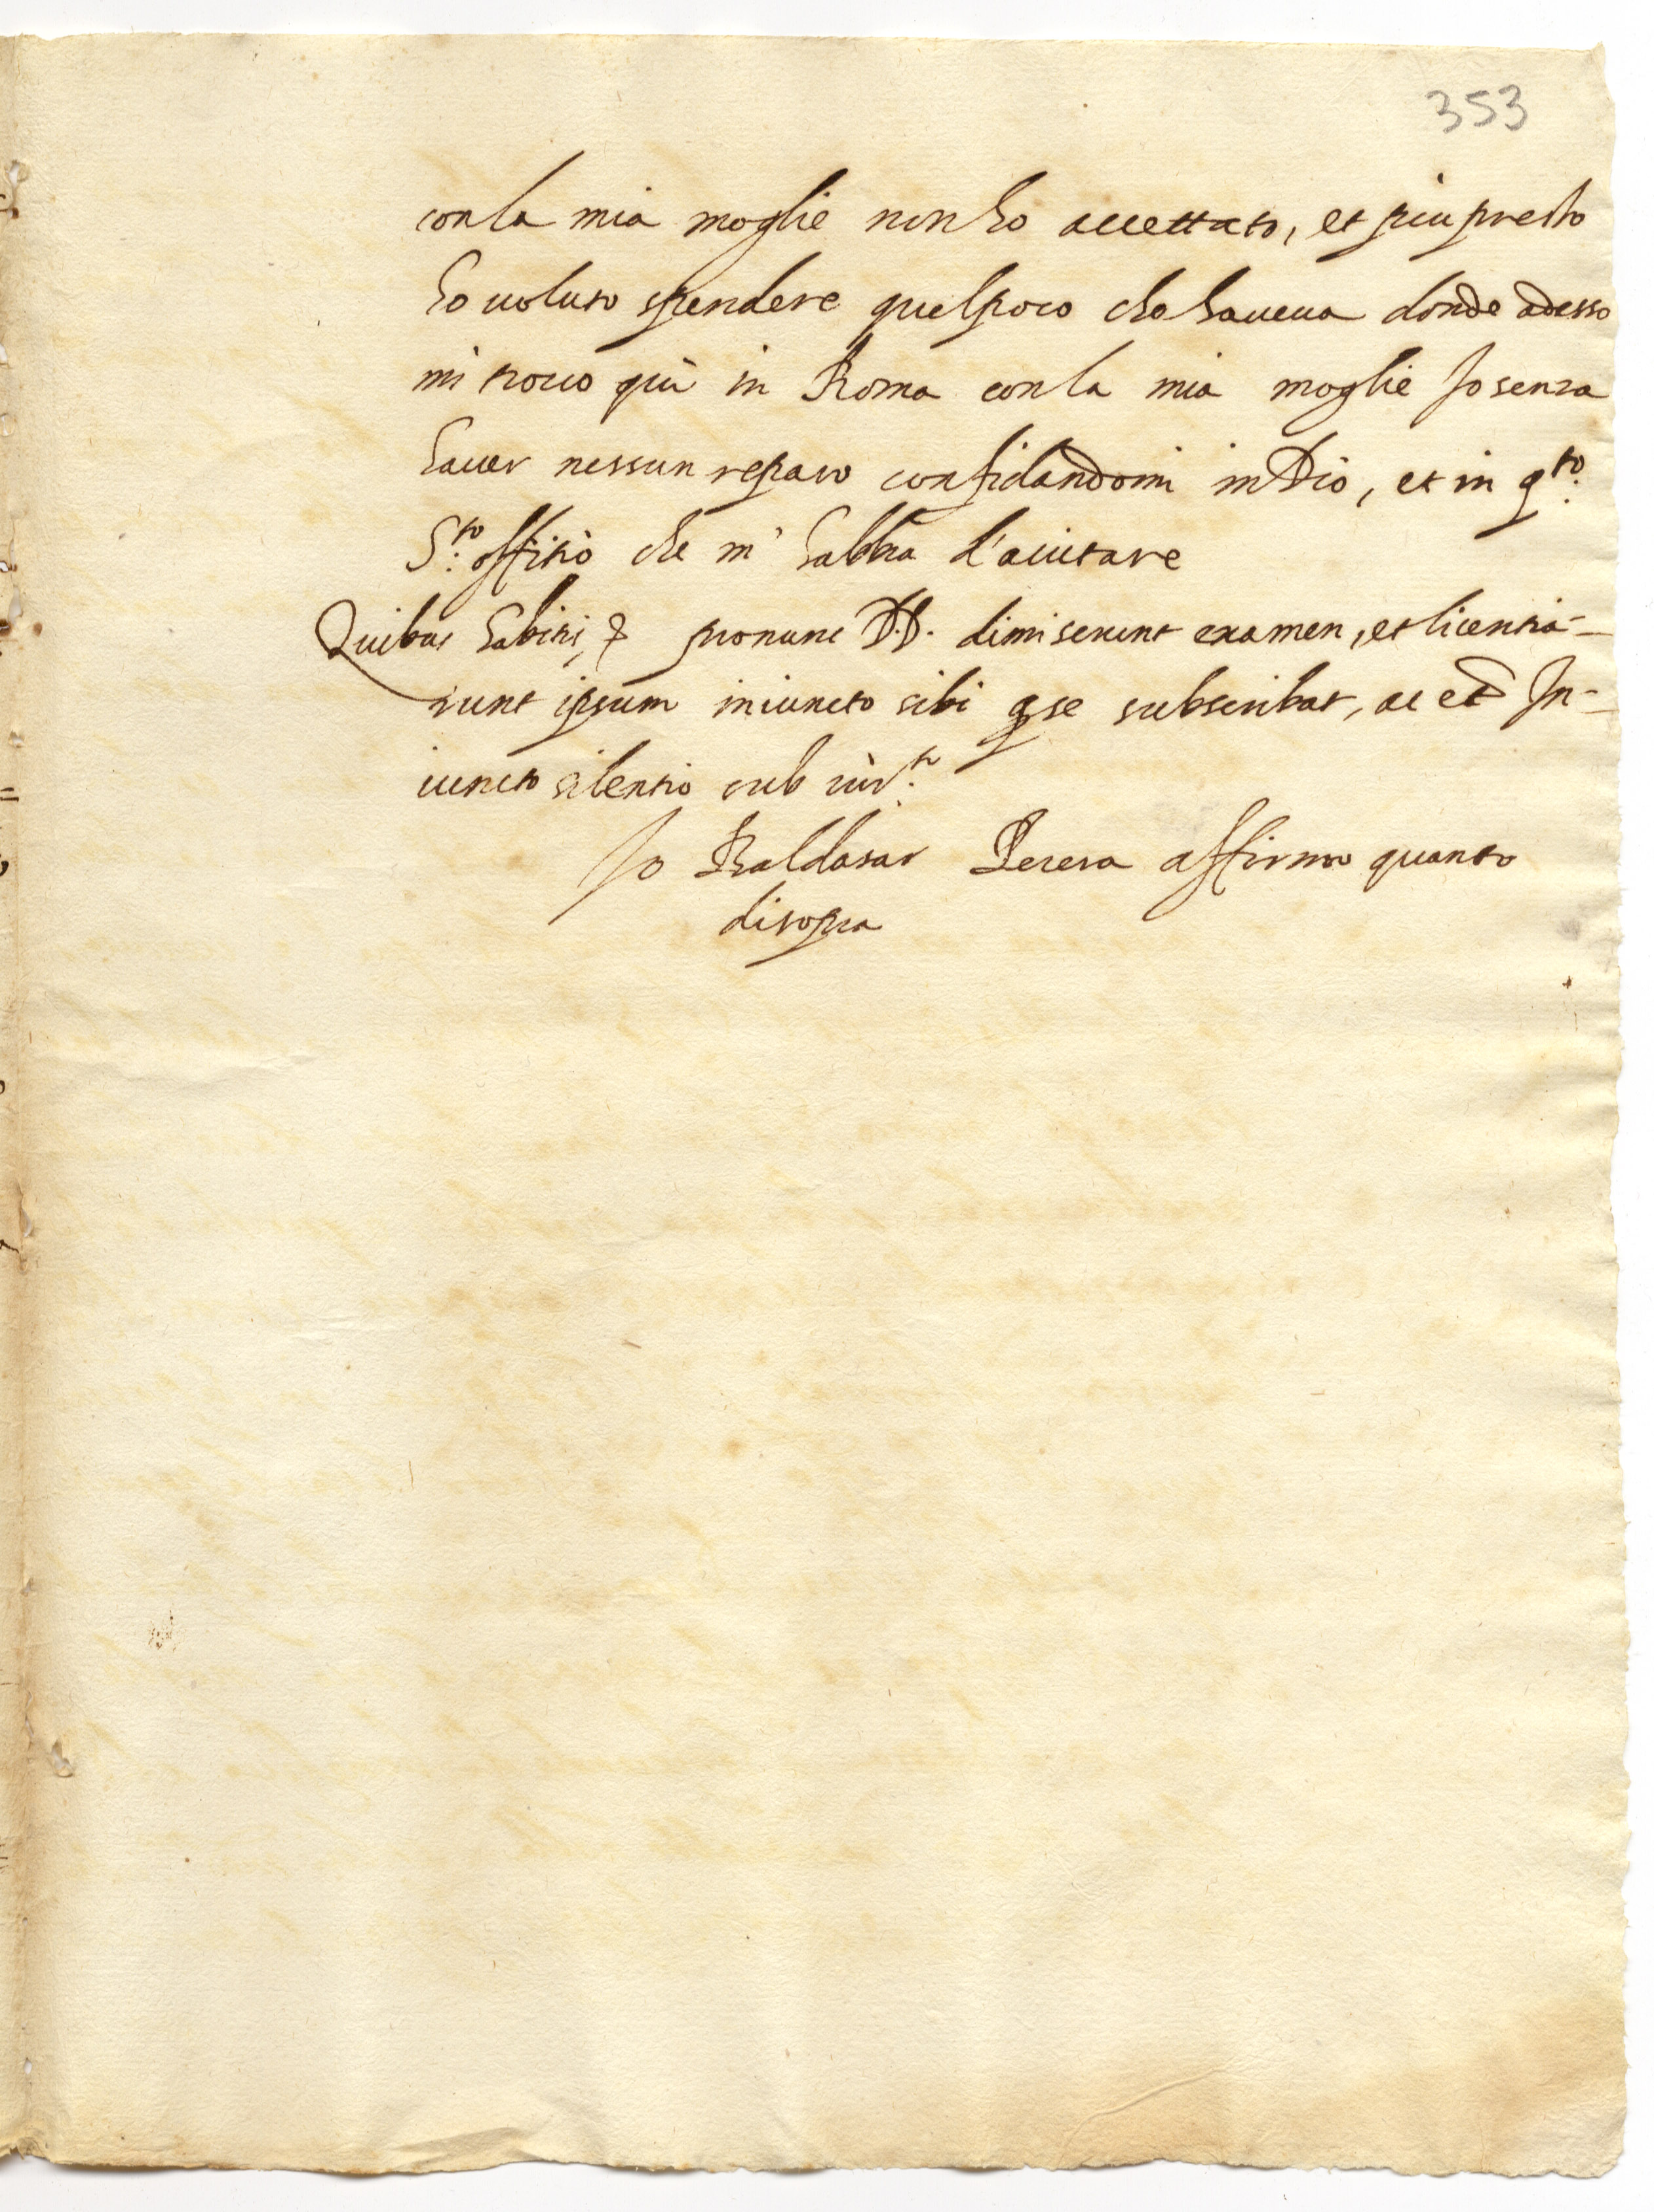 353
con la mia moglie non ho accettato, et piu presto
ho uoluto spendere quel poco che haueua donde adesso
mi trouo quì in Roma con la mia moglie Jo senza
hauer nessun reparo confidandomi in Dio, et in q.to
S.to offitio che m' habbia d'aiutare
Quibus habitis, & pro nunc DD. dimiserunt examen, et licentia-
runt ipsum iniuncto sibi q se subscribat, ac et Jn-
iuncto silentio sub iur.to
Jo Baldasar Perera affirmo quanto
di sopra